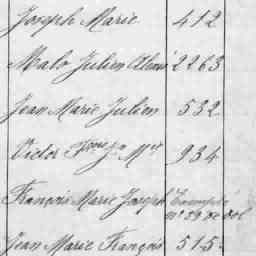 Joseph Marie 412
Malo Julien 2263
Jean Marie Julien 532
Victor 934
François Marie Joseph Exempté
Jean Marie François 515